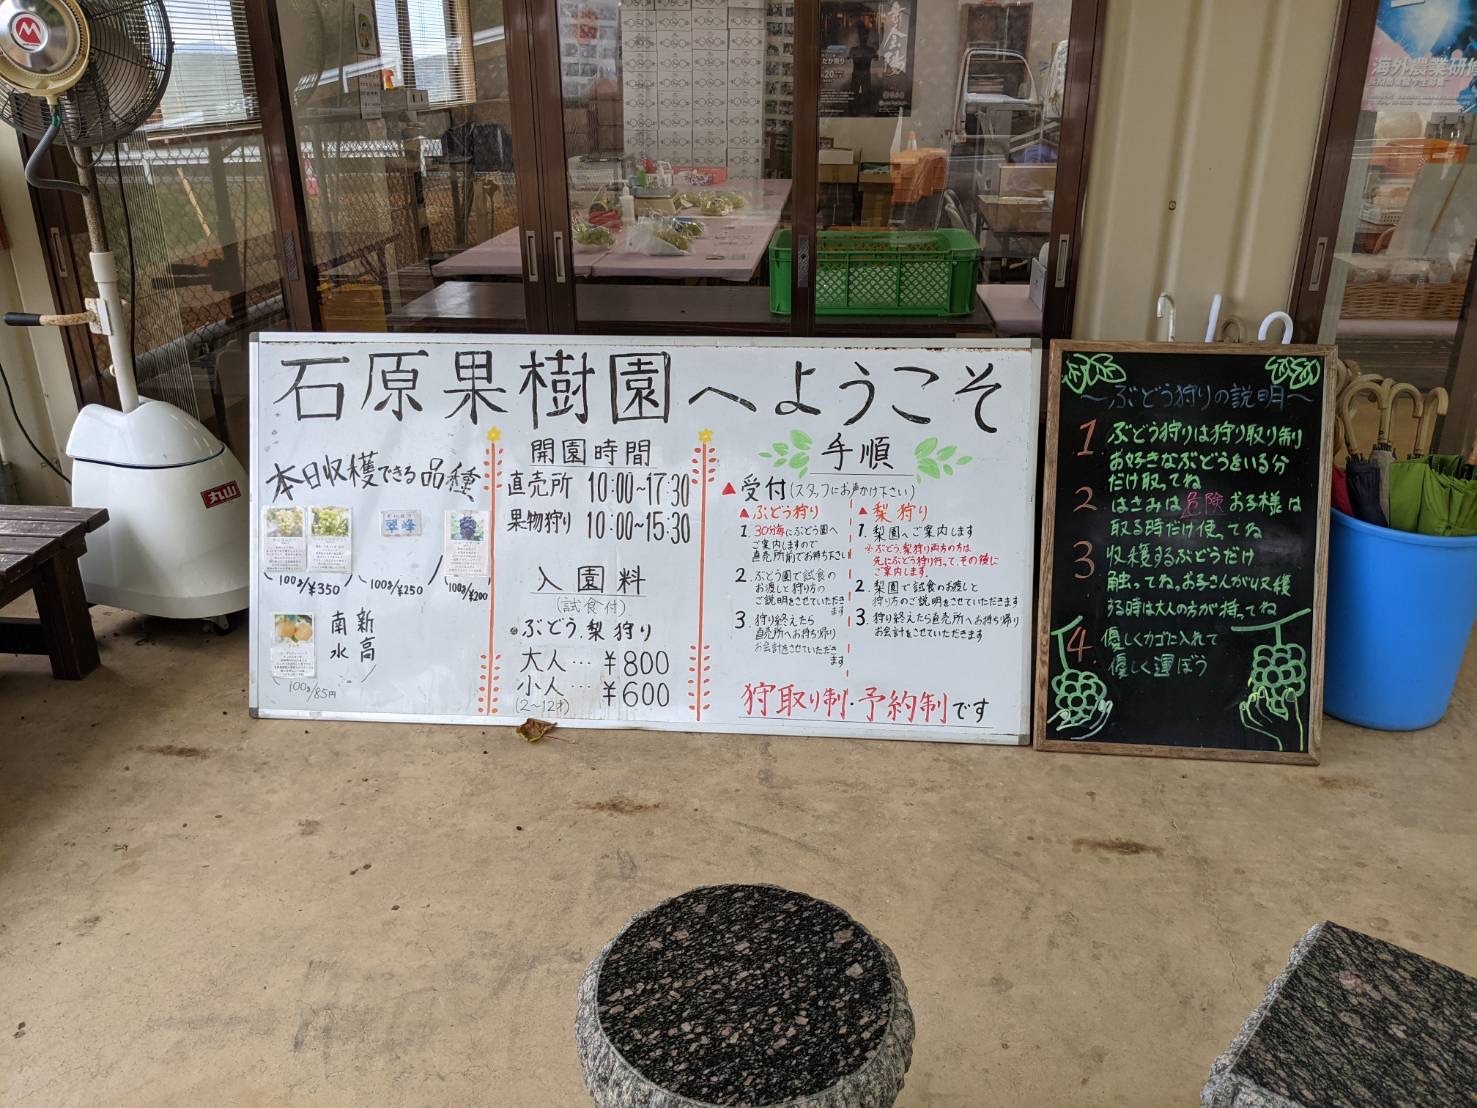 石原果樹園へようこそ
本日収穫できる品種
翠峰
100g/¥350
100g/¥250
100g/¥200
新高
南水
100g/85円
開園時間
直売所 10:00~17:30
果物狩り 10:00~15:30
入園料
(試食付)
ぶどう.梨狩り
大人…¥800
小人…¥600
(2~12才)
手順
▲受付(スタッフにお声かけ下さい)
▲ぶどう狩り
1. 30分毎にぶどう園へ
ご案内しますので
直売所前でお待ち下さい
2. ぶどう園で試食の
お渡しと狩り方の
ご説明をさせていただき
ます
3. 狩り終えたら
直売所へお持ち帰り
お会計をさせていただき
ます
▲梨狩り
1. 梨園へご案内します
※ぶどう梨狩り両方の方は
先にぶどう狩り行って、その後に
ご案内します。
2. 梨園で試食のお渡しと
狩り方のご説明をさせていただきます
3. 狩り終えたら直売所へお持ち帰り
お会計をさせていただきます
狩取り制・予約制です
~ぶどう狩りの説明~
1. ぶどう狩りは狩り取り制
お好きなぶどうをいる分
だけ取ってね
2 はさみは危険 お子様は
取る時だけ使ってね
3 収穫するぶどうだけ
触ってね。お子さんが収穫
する時は大人の方が持ってね
4. 優しくカゴに入れて
優しく運ぼう
丸山
M
海外農業研修